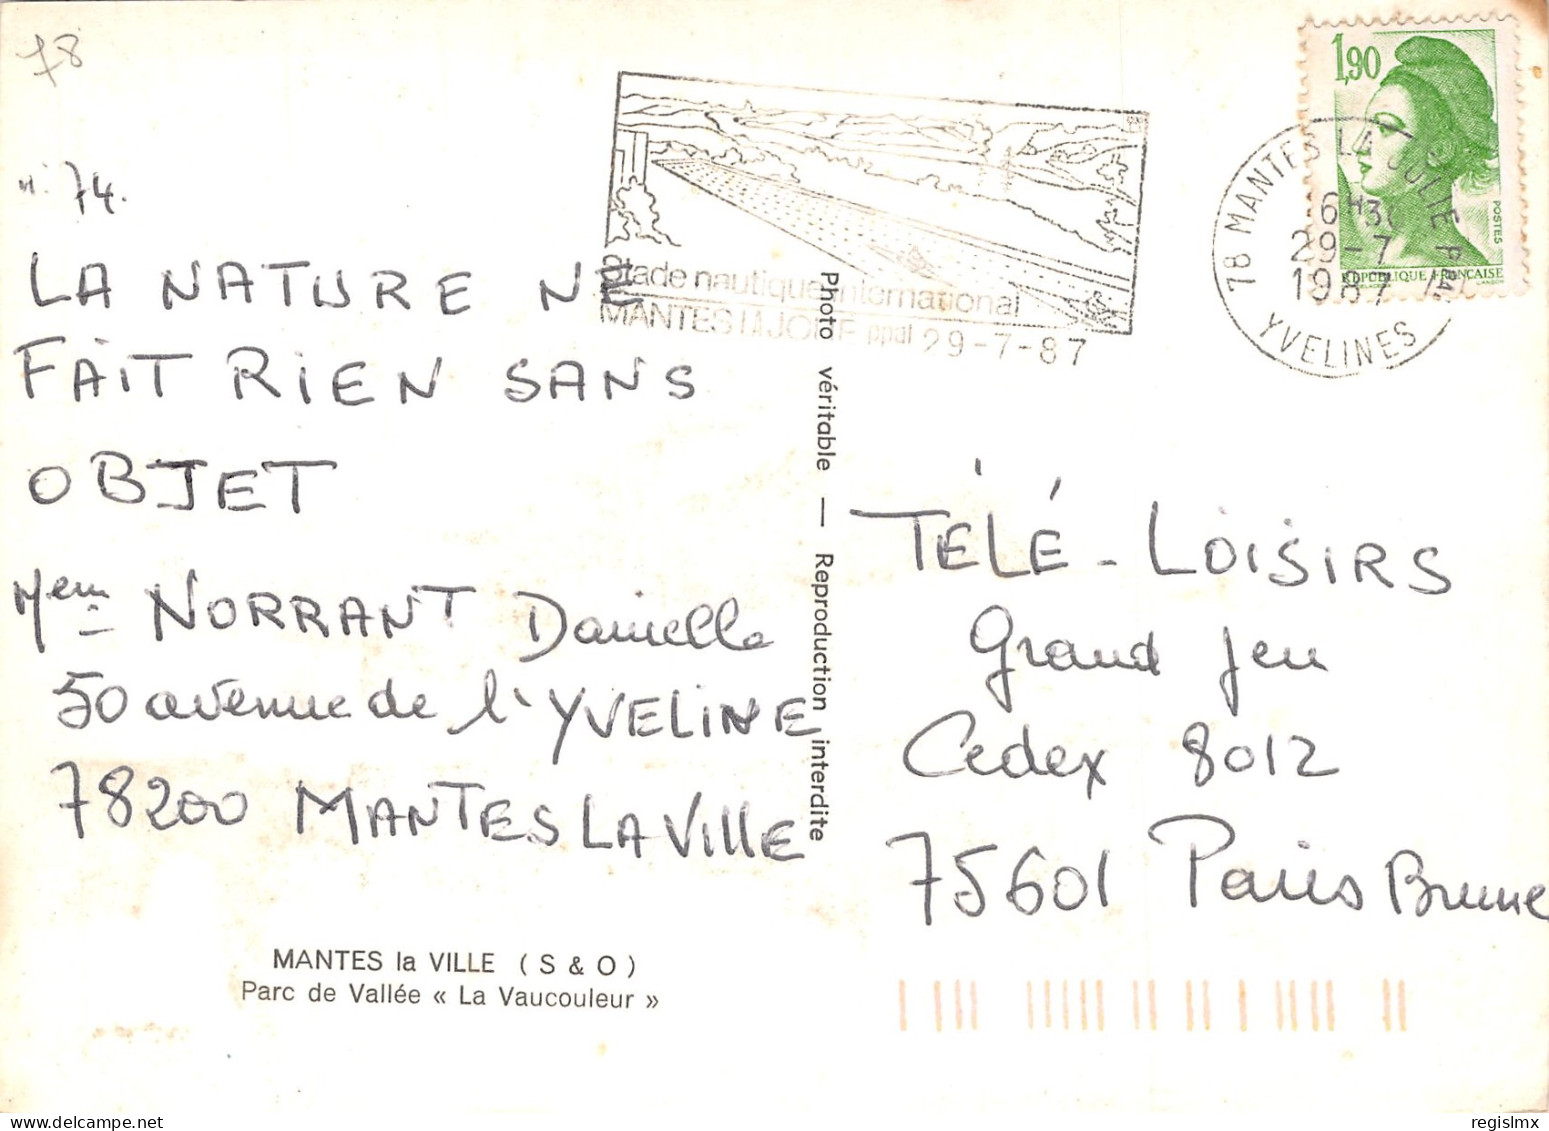 78
n: 74.
LA NATURE NE
FAIT RIEN SANS
OBJET
Mem NORRANT Danielle
50 avenue de l'YVELINE
78200 MANTES LA VILLE
MANTES la VILLE ( S & O )
Parc de Vallée « La Vaucouleur »
Stade nautique international
MANTES LA JOLIE ppal 29-7-87
Photo véritable — Reproduction interdite
1,90
POSTES
REPUBLIQUE FRANÇAISE
78 MANTES LA JOLIE PPAL
29-7
1987
YVELINES
TÉLÉ - LOISIRS
Grand Jeu
Cedex 8012
75601 Paris Brune
regislmx